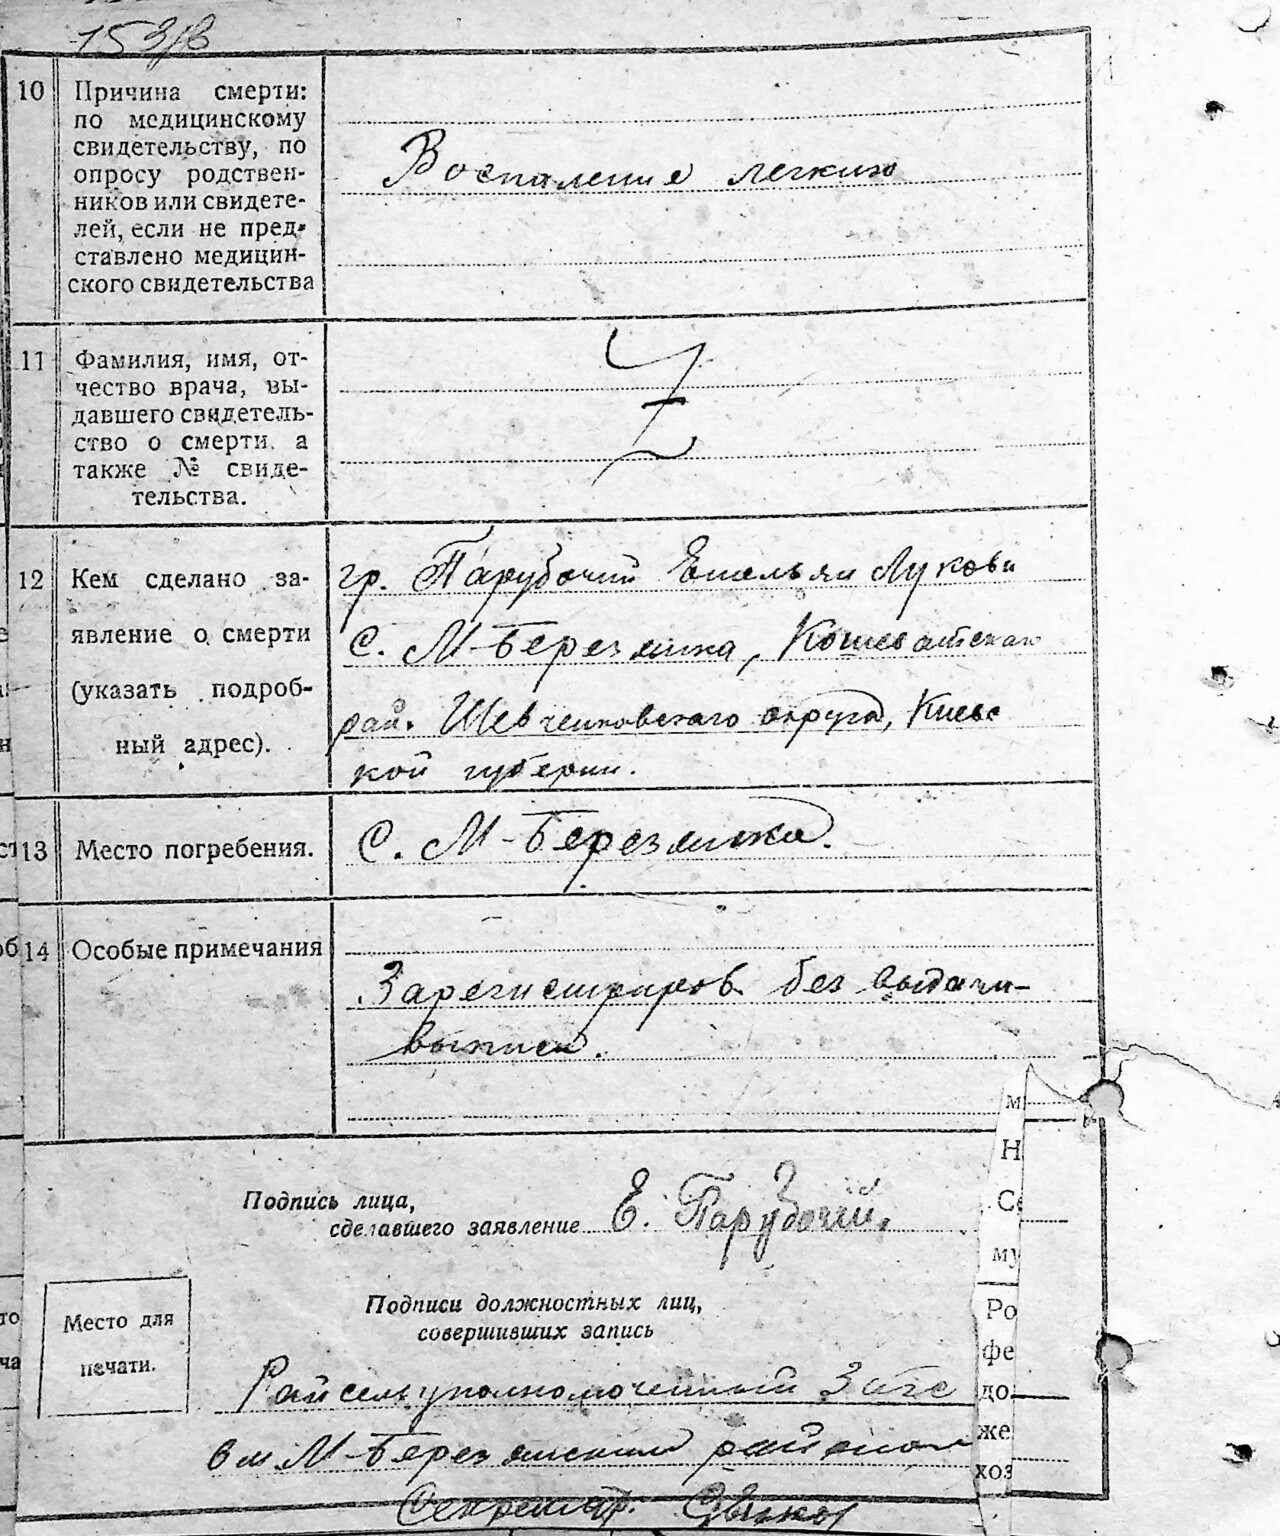 153/8
10 Причина смерти:
по медицинскому
свидетельству, по
опросу родствен-
ников или свидете-
лей, если не пред-
ставлено медицин-
ского свидетельства
Воспаление легких
11 Фамилия, имя, от-
чество врача, вы-
давшего свидетель-
ство о смерти а
также № свиде-
тельства.
Z
12 Кем сделано за-
явление о смерти
(указать подроб-
ный адрес).
гр. Парубочий Емельян Лукови
С. М-Березянка, Кошеватскаго
рай. Шевченковского округа, Киевс
кой губернии.
13 Место погребения.
С. М-Березянка.
14 Особые примечания
Зарегистриров. без выдачи
выписи.
Подпись лица,
сделавшего заявление Е. Парубочий.
Место для
печати.
Подписи должностных лиц,
совершивших запись
Райсельуполномоченный Загс
в м. М-Березянским районом
Секретарь
м
Н
Се
му
Ро
фе
до
же
хоз